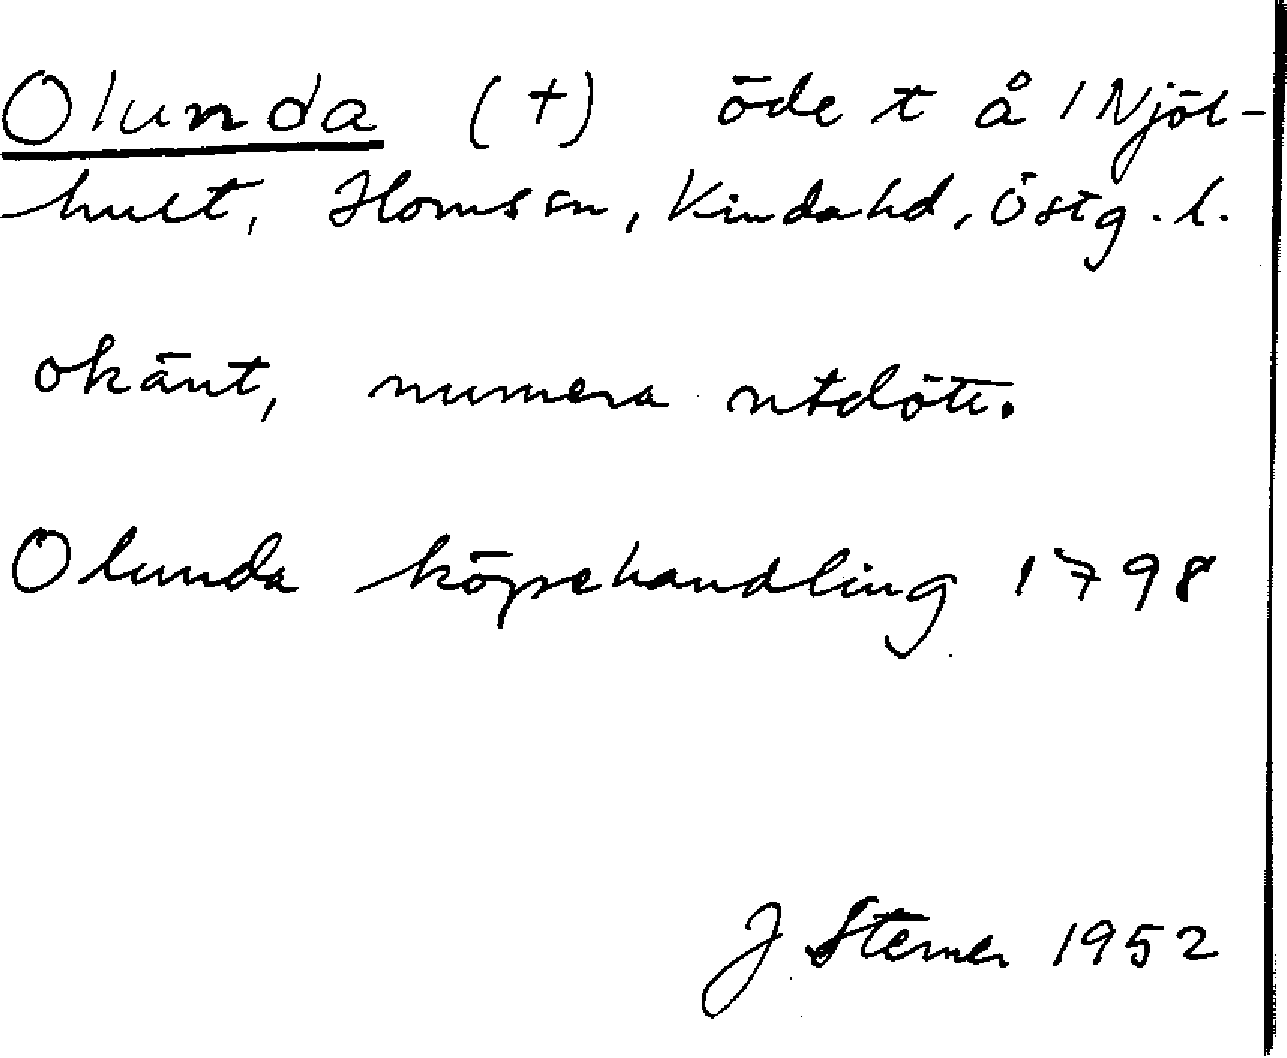 Olunda (+) öde t å 1 Njöl-
hult, Horns sn, Kinda hd, Östg. l.
okänt, numera utdött.
Olunda köpehandling 1798
J Sterner 1952